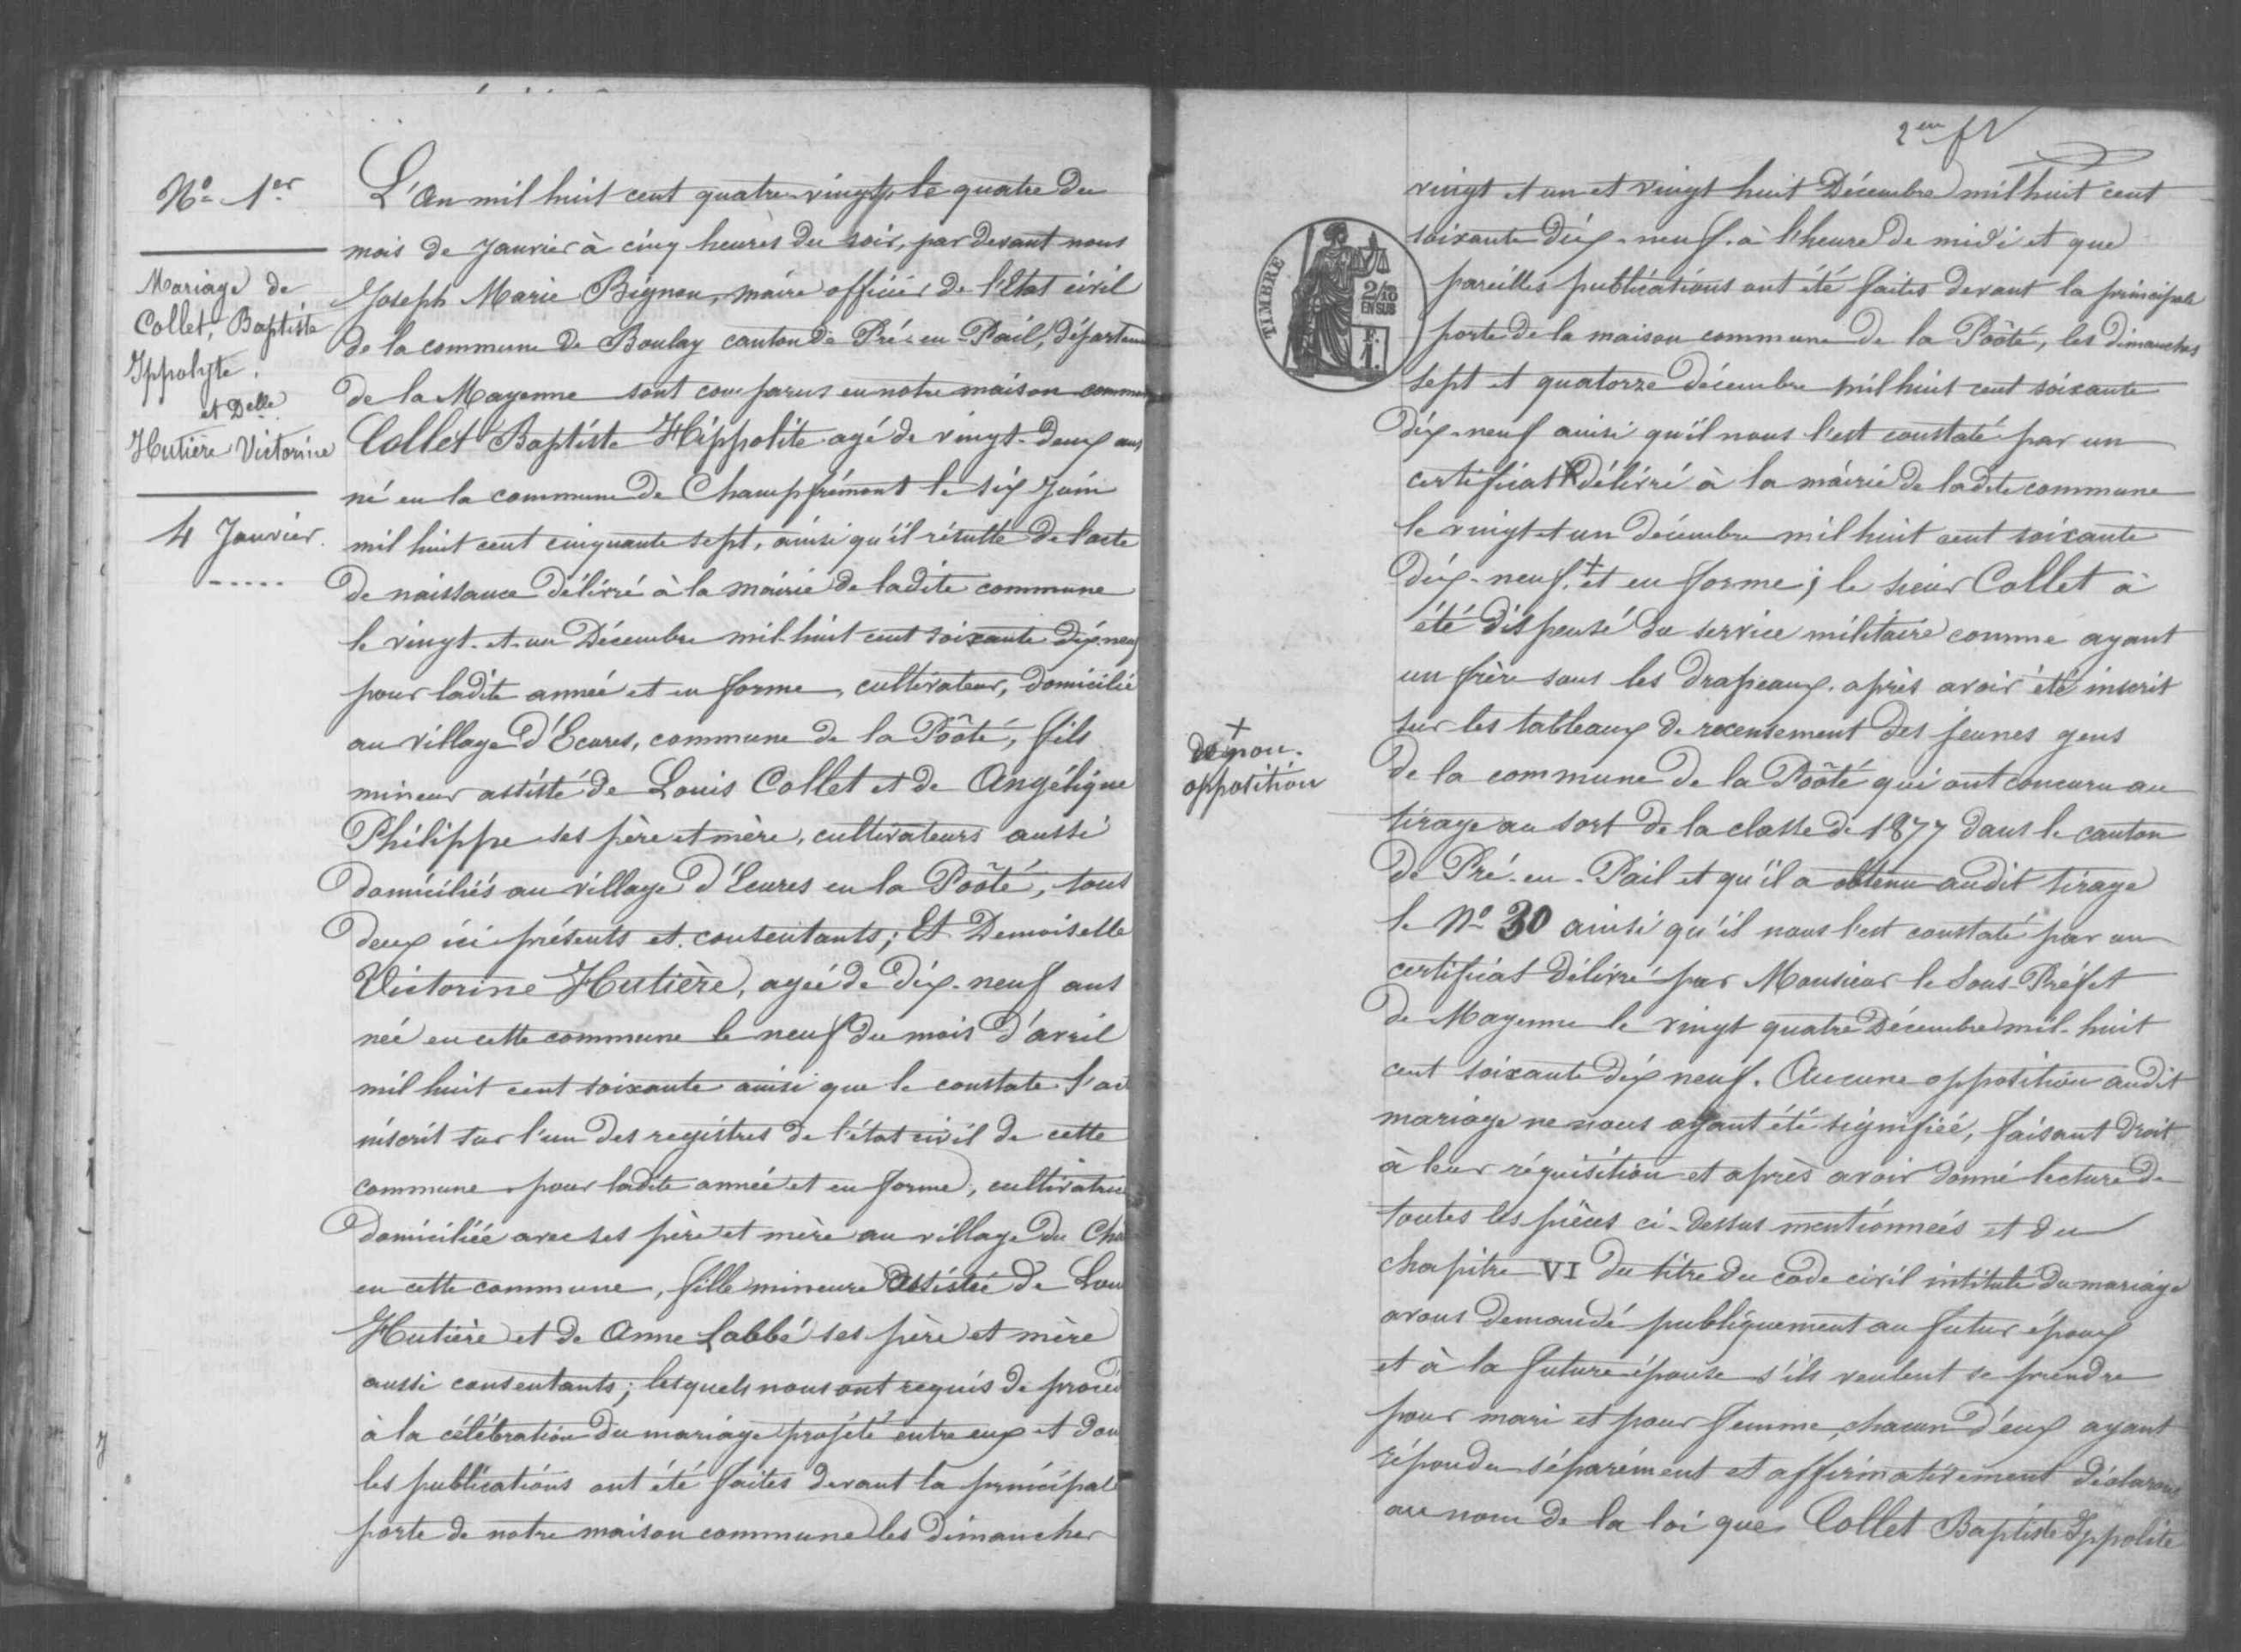 Nº 1er
Mariage de
Collet, Baptiste
Ippolyte.
et Delle
Hutière Victorine
4 Janvier.
L'An mil huit cent quatre-vingt le quatre du
mois de Janvier à cinq heures du soir, par devant nous
Joseph Marie Bignon, maire officier de l'Etat civil
de la commune de Boulay canton de Pré-en-Pail, départem
de la Mayenne sont comparus en notre maison commun
Collet Baptiste Hippolite agé de vingt-deux ans,
né en la commune de Champfrémont le six Juin
mil huit cent cinquante sept, ainsi qu'il résulte de l'acte
de naissance délivré à la mairie de ladite commune
le vingt-et-un Décembre mil-huit cent soixante dix-neuf
pour ladite année et en forme, cultivateur, domicilié
au village d'Ecures, commune de la Pôôté, fils
mineur assisté de Louis Collet et de Angélique
Philippe ses père et mère, cultivateurs aussi
domiciliés au village d'Ecures en la Pôôté, tous
deux ici présents et consentants; Et Demoiselle
Victorine Hutière, agée de dix-neuf ans
née en cette commune le neuf du mois d'avril
mil huit cent soixante ainsi que le constate l'ac
inscrit sur l'un des registres de l'état civil de cette
commune pour ladite année et en forme, cultivatrice
domiciliée avec ses père et mère au village du Cha
en cette commune, fille mineure assistée de Lou
Hutière et de Anne Labbé ses père et mère
aussi consentants; lesquels nous ont requis de procéd
à la célébration du mariage projeté entre eux et don
les publications ont été faites devant la principale
porte de notre maison commune les dimanches
2em ft
TIMBRE
2/10
EN SUS
F.
1.
vingt et un et vingt huit Décembre mil huit cent
soixante dix-neuf à l'heure de midi et que
pareilles publications ont été faites devant la principale
porte de la maison commune de la Pôôté, les dimanches
sept et quatorze décembre mil huit cent soixante
dix-neuf ainsi qu'il nous l'est constaté par un
certificat délivré à la mairie de ladite commune
le vingt et un décembre mil huit cent soixante
dix-neuf + et en forme; le sieur Collet a
été dispensé du service militaire comme ayant
un frère sous les drapeaux. après avoir été inscrit
sur les tableaux de recensement des jeunes gens
de la commune de la Pôôté qui ont concouru au
tirage au sort de la classe de 1877 dans le canton
de Pré-en-Pail et qu'il a obtenu audit tirage
le Nº 30 ainsi qu'il nous l'est constaté par un
certificat délivré par Monsieur le Sous-Préfet
de Mayenne le vingt quatre Décembre mil-huit
cent soixante dix neuf. Aucune opposition audit
mariage ne nous ayant été signifiée, faisant droit
à leur réquisition et après avoir donné lecture de
toutes les pièces ci-dessus mentionneés et du
chapitre VI du titre du code civil intitulé du mariage
avons demandé publiquement au futur époux
et à la future épouse s'ils veulent se prendre
pour mari et pour femme, chacun d'eux ayant
répondu séparément et affirmativement déclarons
au nom de la loi que Collet Baptiste Ippolite
+
de non.
opposition